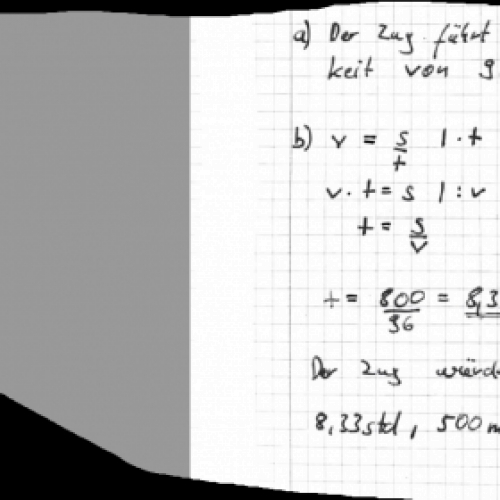 a) Der Zug fährt
keit von 9
b) v = s/t | · t
v · t = s | : v
t = s/v
t = 800/96 = 8,3
Der Zug würd
8,33 std, 500 m